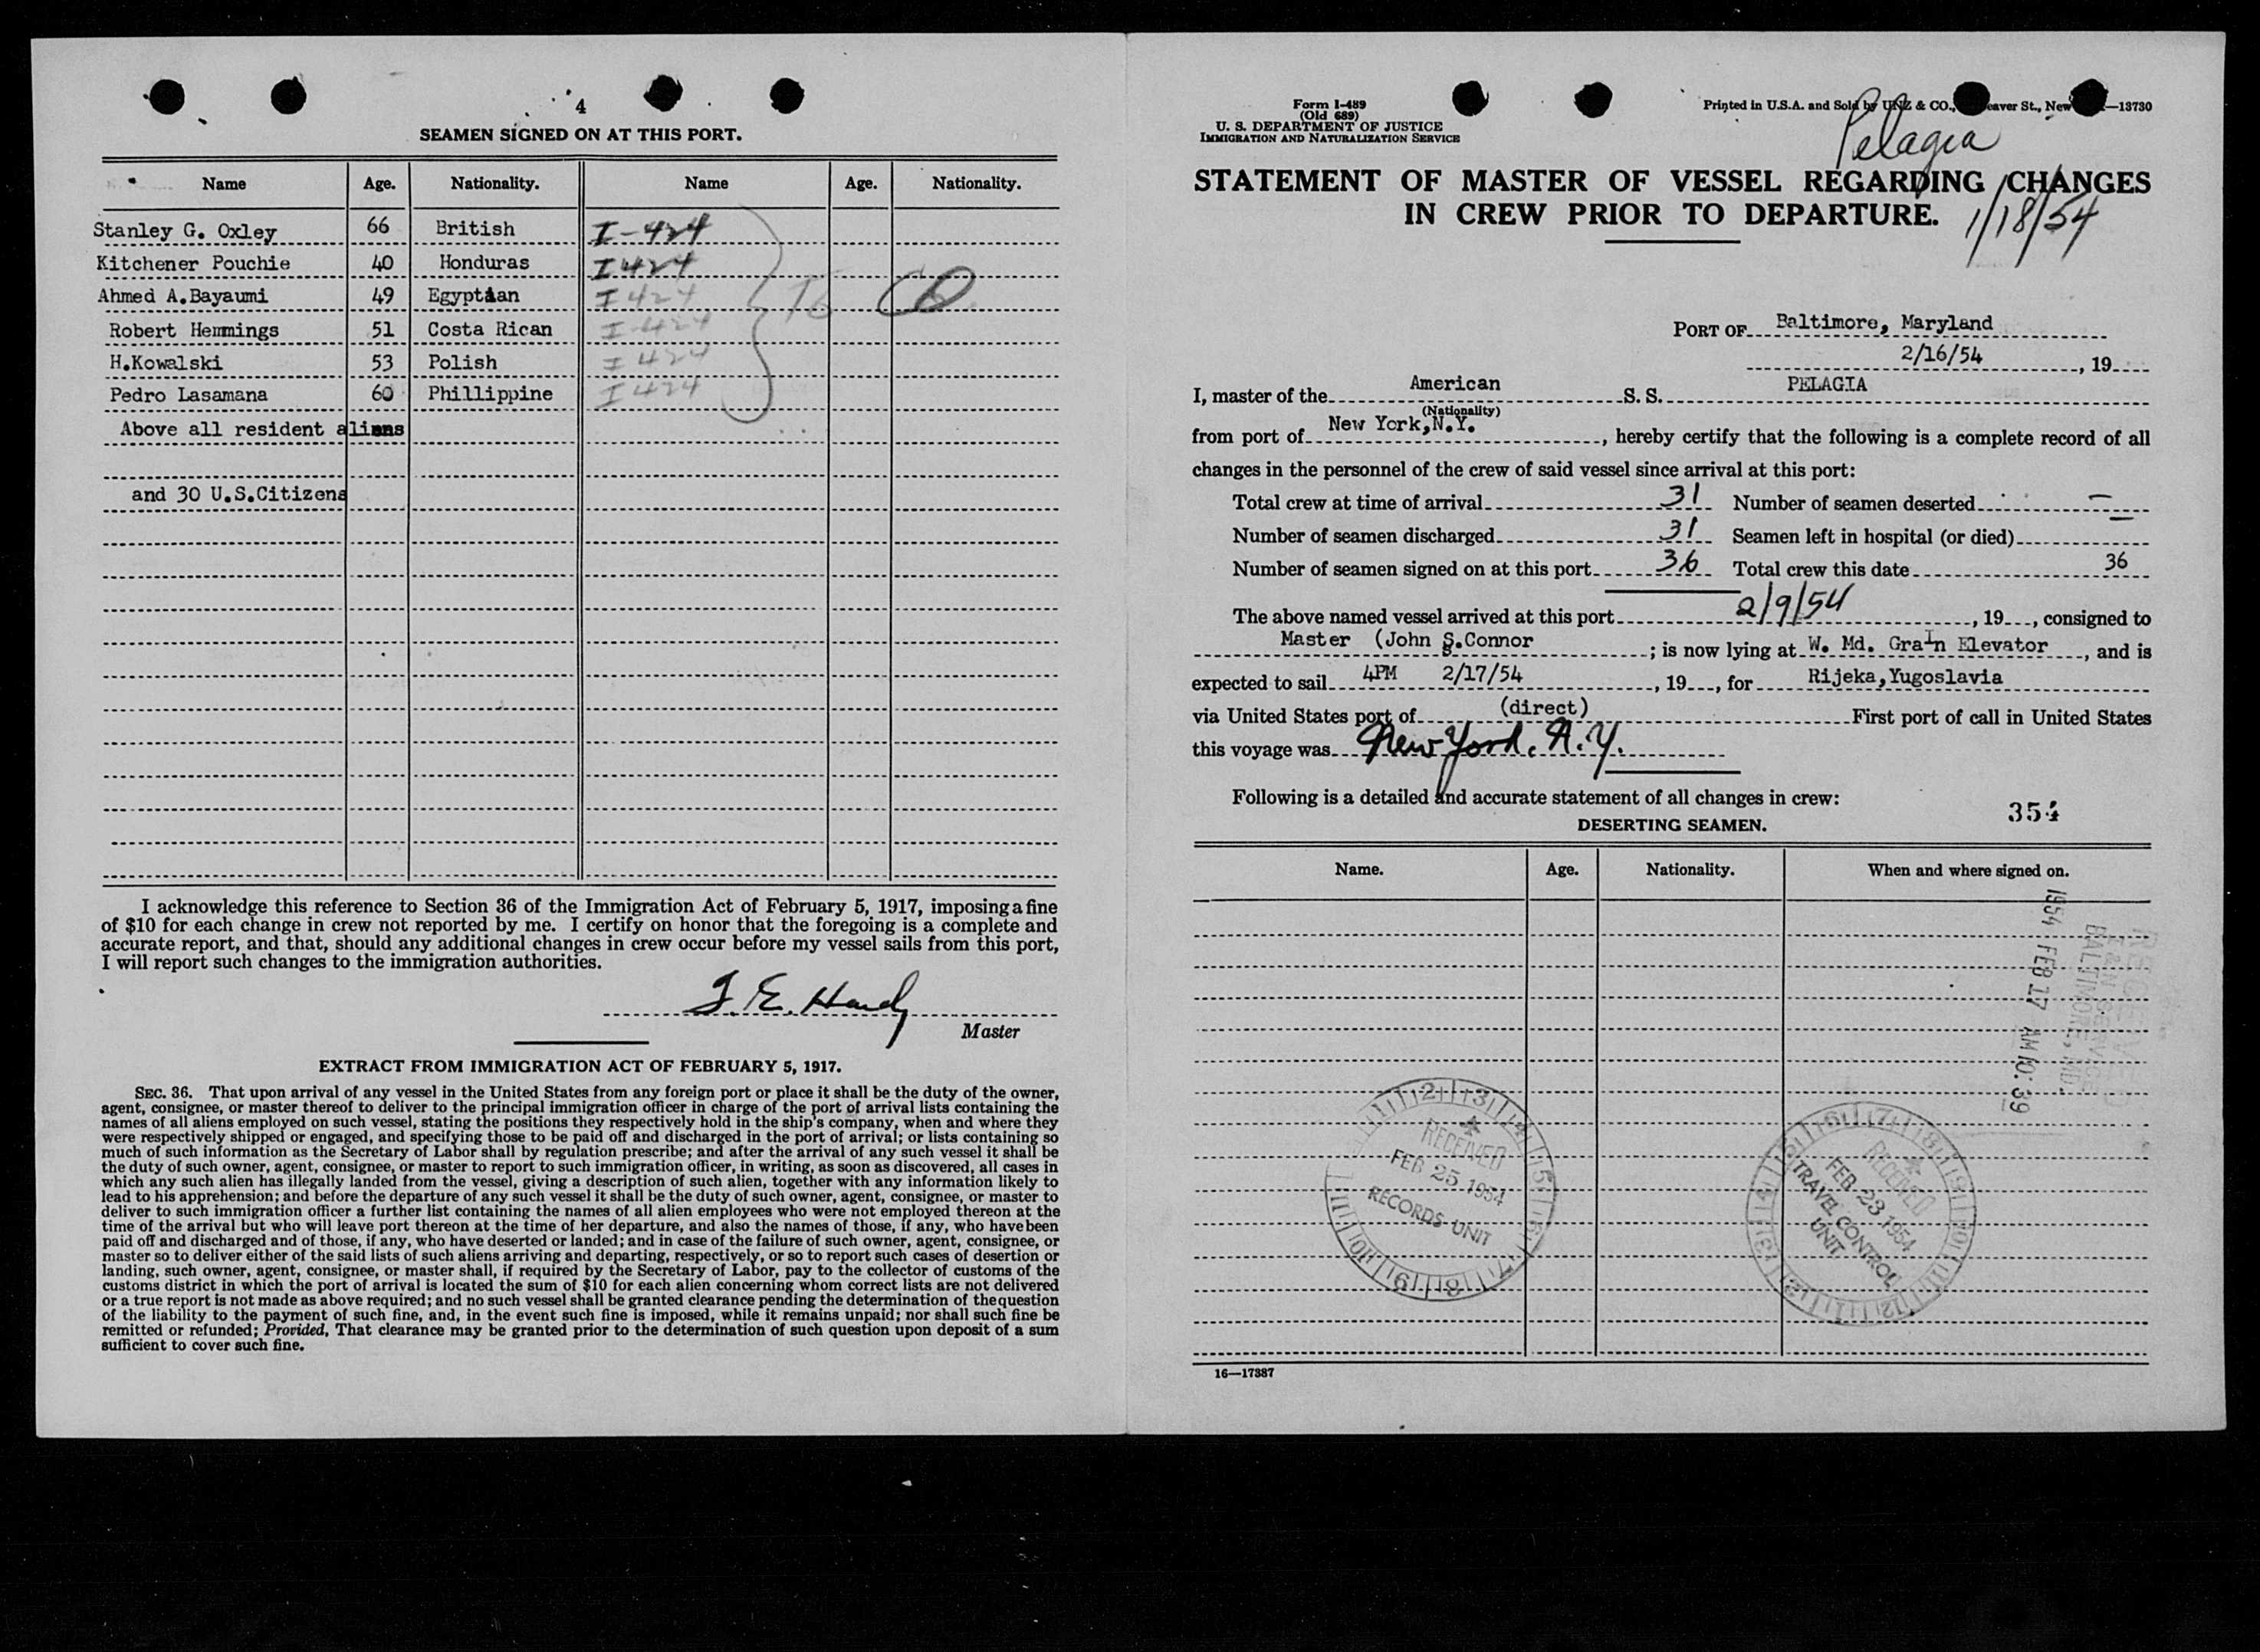 4
SEAMEN SIGNED ON AT THIS PORT.
Name Age. Nationality. Name Age. Nationality.
Stanley G. Oxley 66 British I-424
Kitchener Pouchie 40 Honduras I 424
Ahmed A.Bayaumi 49 Egyptian I 424
Robert Hemmings 51 Costa Rican I-424
H.Kowalski 53 Polish I 424
Pedro Lasamana 60 Phillippine I 424
Above all resident aliens
and 30 U.S.Citizens
I acknowledge this reference to Section 36 of the Immigration Act of February 5, 1917, imposing a fine
of $10 for each change in crew not reported by me. I certify on honor that the foregoing is a complete and
accurate report, and that, should any additional changes in crew occur before my vessel sails from this port,
I will report such changes to the immigration authorities.
Master
EXTRACT FROM IMMIGRATION ACT OF FEBRUARY 5, 1917.
SEC. 36. That upon arrival of any vessel in the United States from any foreign port or place it shall be the duty of the owner,
agent, consignee, or master thereof to deliver to the principal immigration officer in charge of the port of arrival lists containing the
names of all aliens employed on such vessel, stating the positions they respectively hold in the ship's company, when and where they
were respectively shipped or engaged, and specifying those to be paid off and discharged in the port of arrival; or lists containing so
much of such information as the Secretary of Labor shall by regulation prescribe; and after the arrival of any such vessel it shall be
the duty of such owner, agent, consignee, or master to report to such immigration officer, in writing, as soon as discovered, all cases in
which any such alien has illegally landed from the vessel, giving a description of such alien, together with any information likely to
lead to his apprehension; and before the departure of any such vessel it shall be the duty of such owner, agent, consignee, or master to
deliver to such immigration officer a further list containing the names of all alien employees who were not employed thereon at the
time of the arrival but who will leave port thereon at the time of her departure, and also the names of those, if any, who have been
paid off and discharged and of those, if any, who have deserted or landed; and in case of the failure of such owner, agent, consignee, or
master so to deliver either of the said lists of such aliens arriving and departing, respectively, or so to report such cases of desertion or
landing, such owner, agent, consignee, or master shall, if required by the Secretary of Labor, pay to the collector of customs of the
customs district in which the port of arrival is located the sum of $10 for each alien concerning whom correct lists are not delivered
or a true report is not made as above required; and no such vessel shall be granted clearance pending the determination of the question
of the liability to the payment of such fine, and, in the event such fine is imposed, while it remains unpaid; nor shall such fine be
remitted or refunded; Provided, That clearance may be granted prior to the determination of such question upon deposit of a sum
sufficient to cover such fine.
Form I-489
(Old 689)
U. S. DEPARTMENT OF JUSTICE
IMMIGRATION AND NATURALIZATION SERVICE
Printed in U.S.A. and Sold by UNZ & CO., eaver St., New —13730
Pelagia
1/18/54
STATEMENT OF MASTER OF VESSEL REGARDING CHANGES
IN CREW PRIOR TO DEPARTURE.
PORT OF Baltimore, Maryland
2/16/54, 19
I, master of the American S. S. PELAGIA
(Nationality)
from port of New York,N.Y., hereby certify that the following is a complete record of all
changes in the personnel of the crew of said vessel since arrival at this port:
Total crew at time of arrival 31 Number of seamen deserted —
Number of seamen discharged 31 Seamen left in hospital (or died) —
Number of seamen signed on at this port 36 Total crew this date 36
The above named vessel arrived at this port 2/9/54, 19, consigned to
Master (John S.Connor; is now lying at W. Md. Grain Elevator, and is
expected to sail 4PM 2/17/54, 19, for Rijeka,Yugoslavia
via United States port of (direct) First port of call in United States
this voyage was New York, N.Y.
Following is a detailed and accurate statement of all changes in crew:
354
DESERTING SEAMEN.
Name. Age. Nationality. When and where signed on.
1954 FEB 17 AM 10:39
BALTIMORE, MD.
RECEIVED
FEB 25 1954
RECORDS UNIT
RECEIVED
FEB 23 1954
TRAVEL CONTROL
UNIT
16—17387